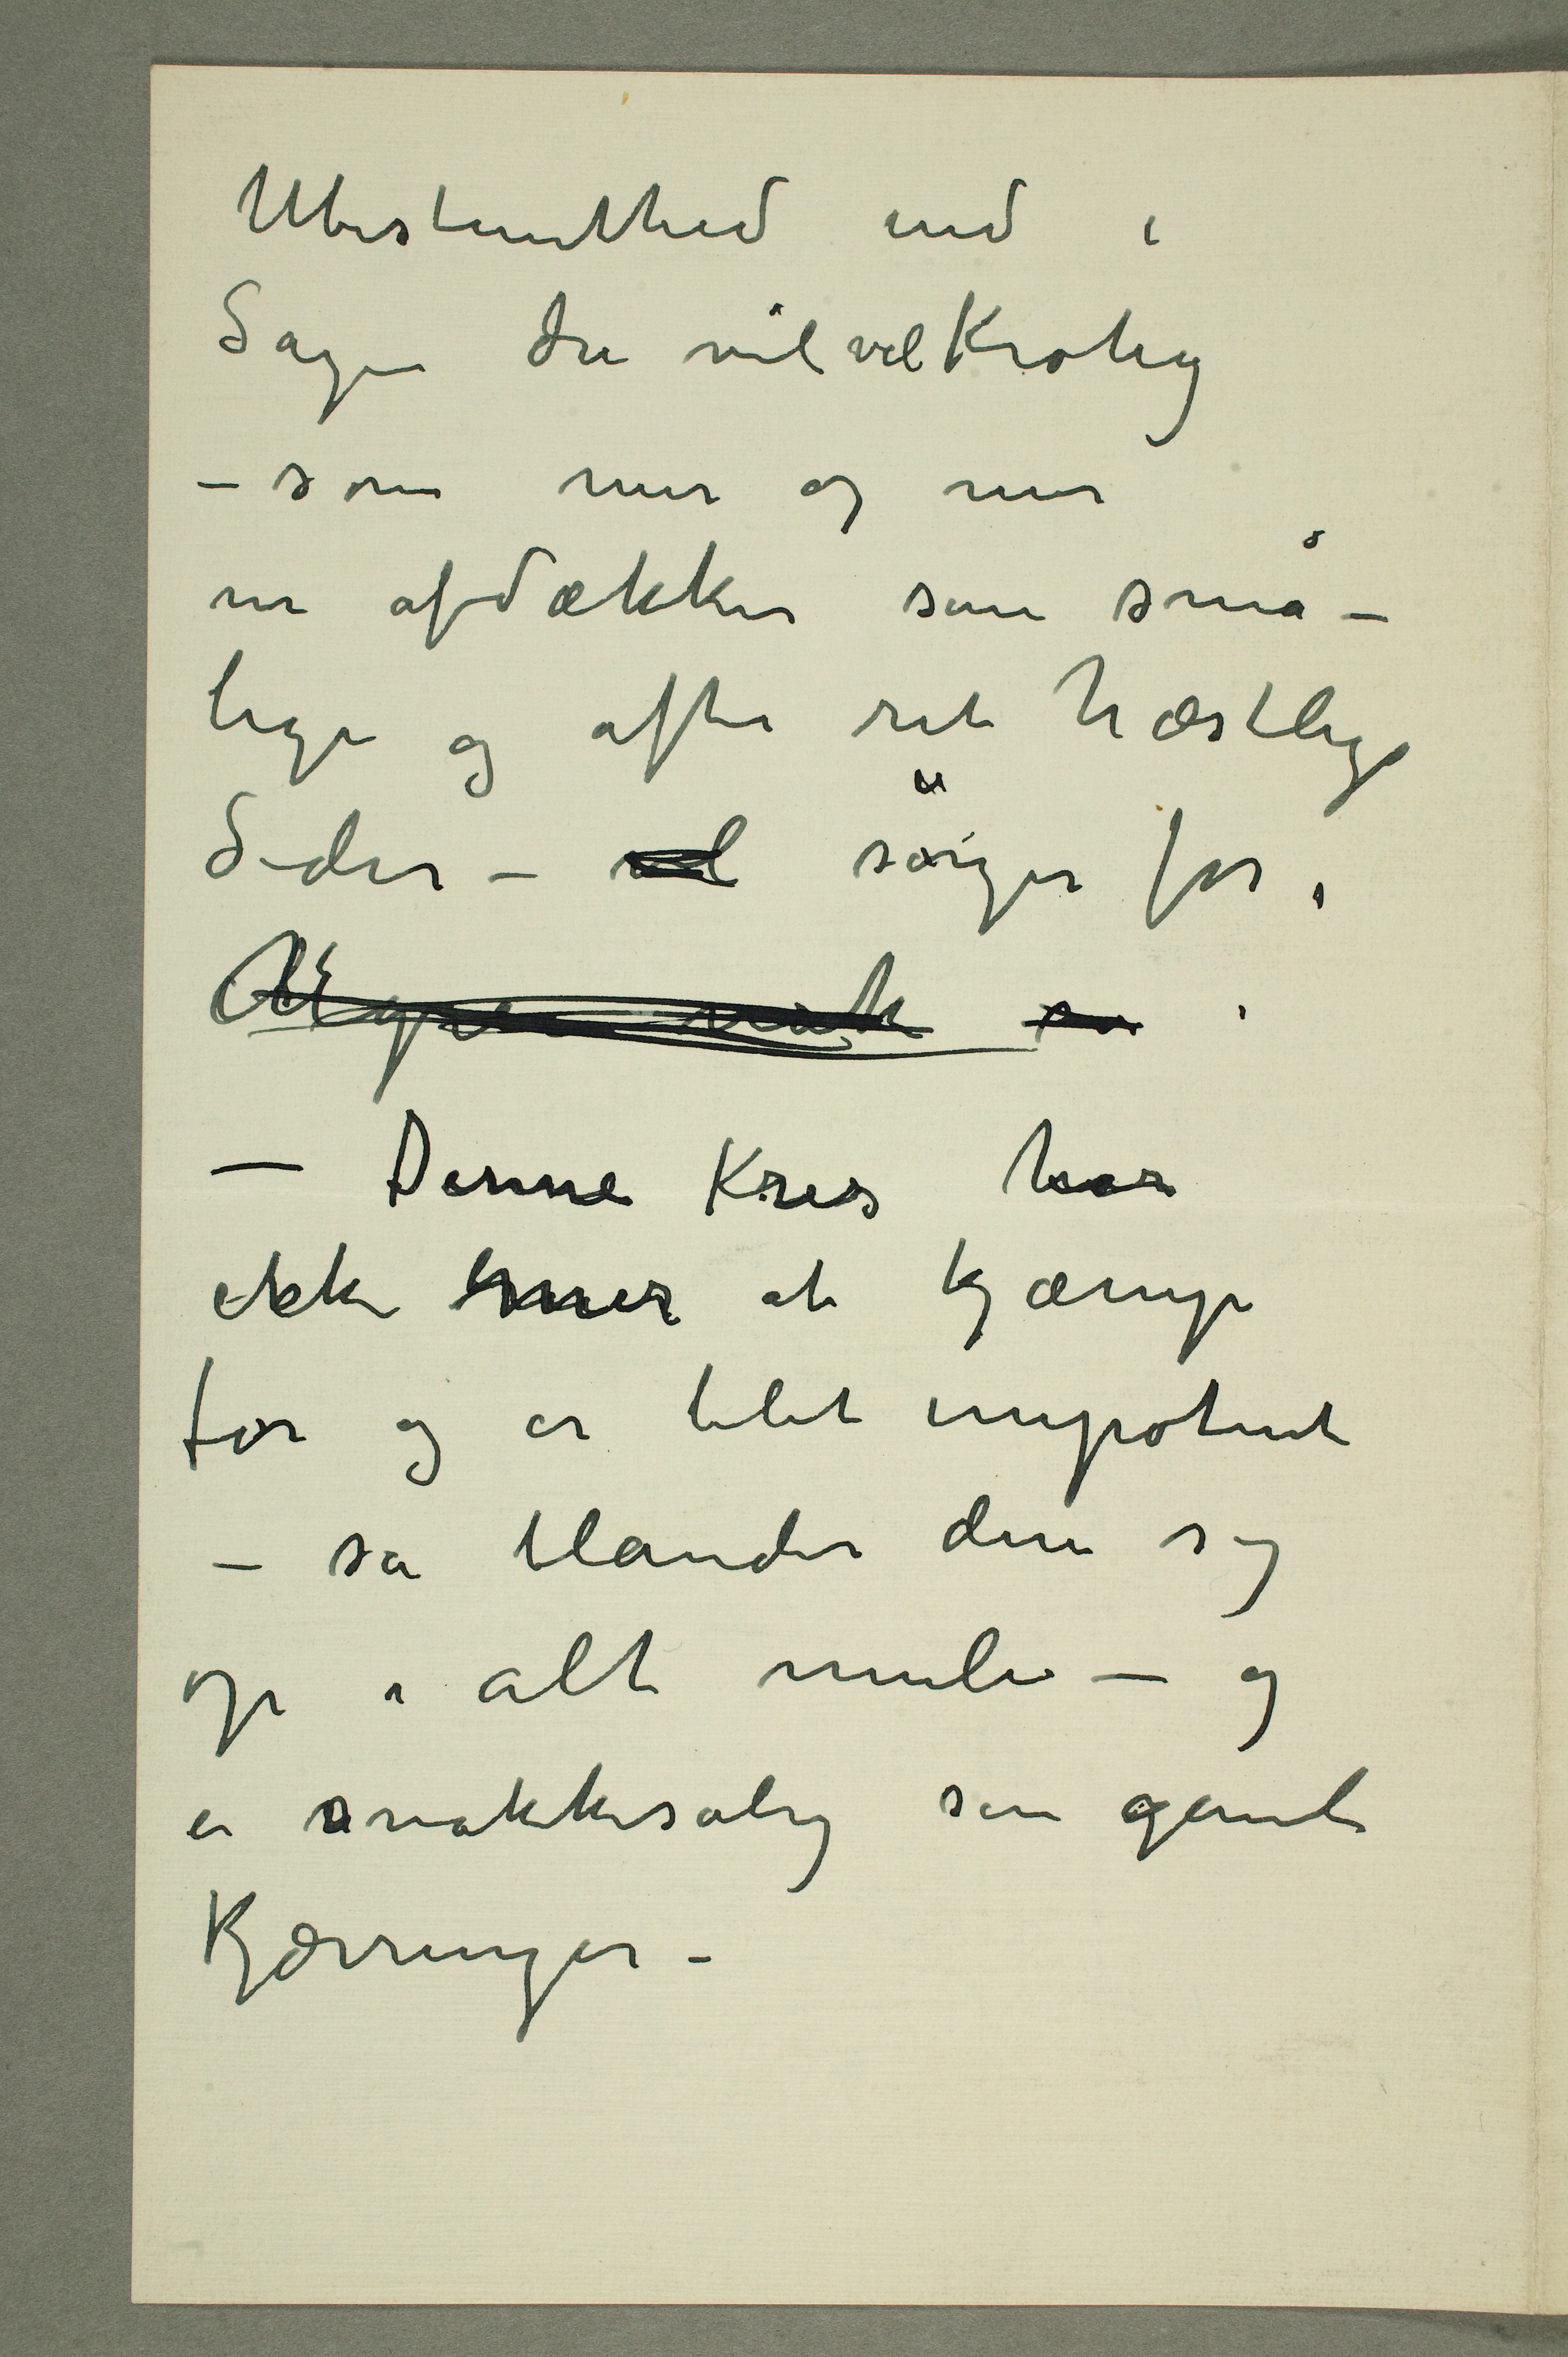 Ubestemthed ind i
Sagen det vil vel Krohg
– som mer og mer
nu afdækker sine små–
lige og ofte ret hæslige
Sider – vel sörger for,
– Denne Kres har
ikke mer at kjæmpe
for og er blet impotent
– så blander den sig
op i alt muli – og
er snakkesalig som gamle
Kjærringer –